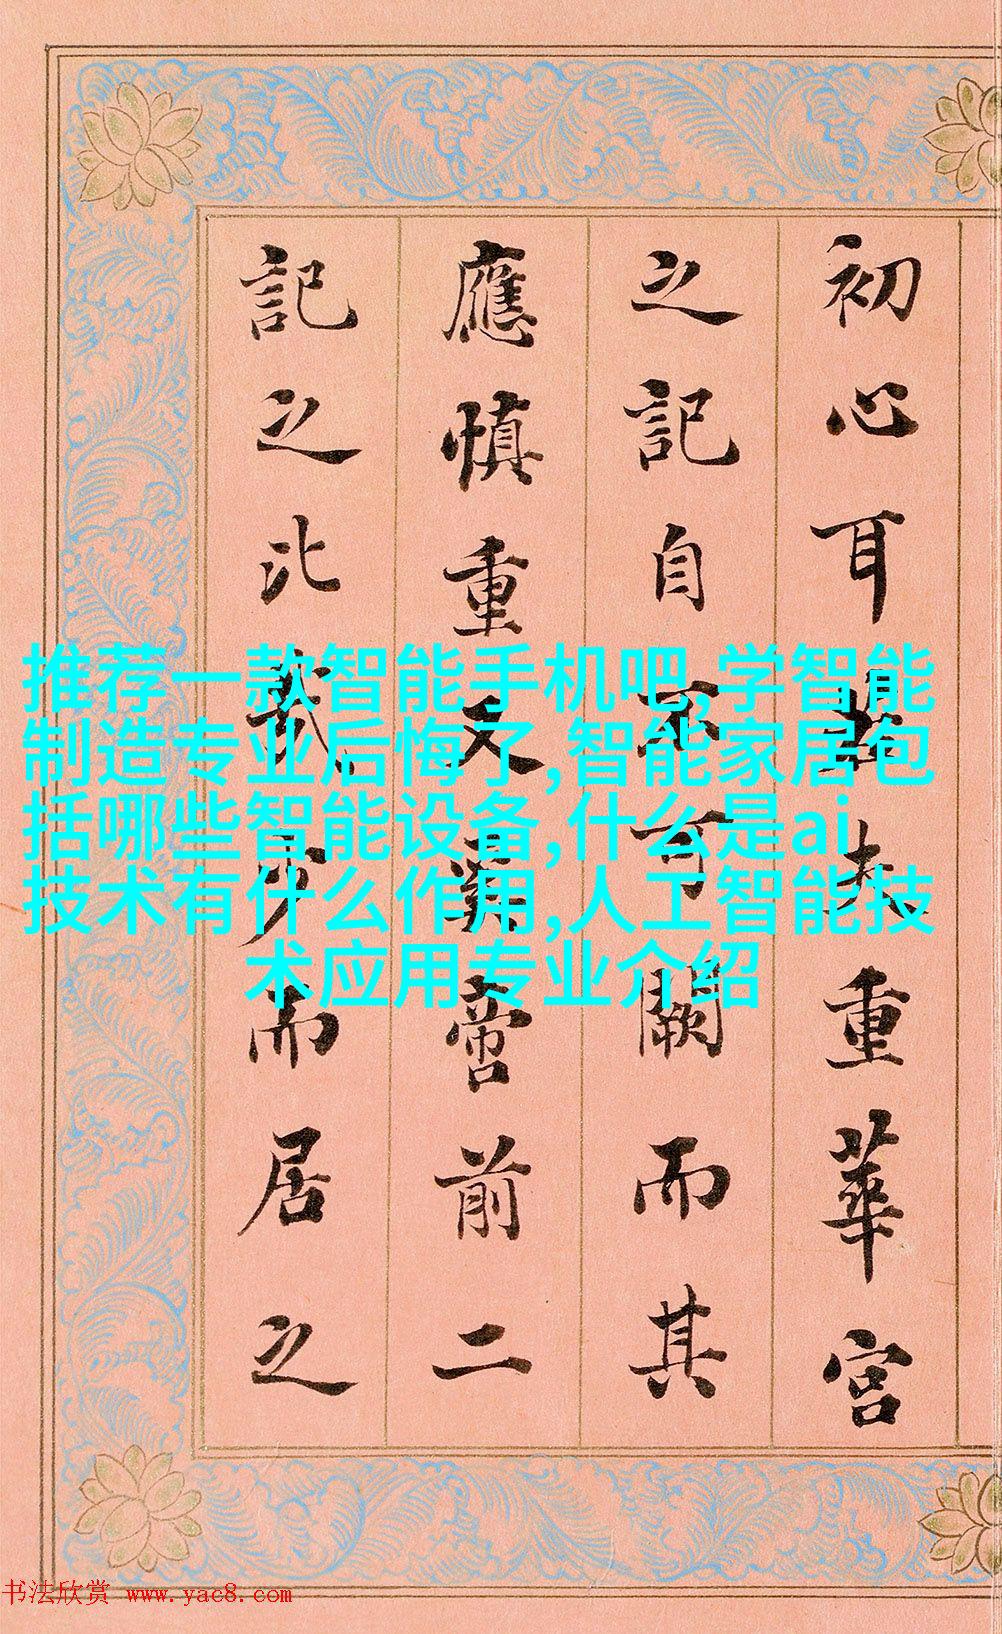 初心耳夫重華宮
之記自不可闕而其
應慎重又奚啻前二
記之比哉少而居之
推荐一款智能手机吧,学智能
制造专业后悔了,智能家居包
括哪些智能设备,什么是ai
技术有什么作用,人工智能技
术应用专业介绍
书法欣赏 www.yac8.com